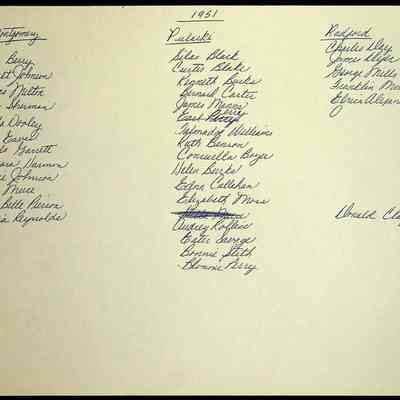 1951
Montgomery
Berry
Johnson
Milton
Sherman
Dooley
Eaves
Garrett
Harmon
Johnson
Muse
Belle Pierson
Reynolds
Pulaski
Silas Black
Curtis Blake
Kenneth Burks
Bernard Carter
James Magee
Earl Perry
Talmadge Williams
Ruth Benson
Consuella Boyer
Helen Burks
Edna Callahan
Elizabeth Moss
Audrey
Ester Savage
Bonnie Stith
Blonnie Perry
Radford
Charles Day
James Dyer
George Mills
Franklin
Donald